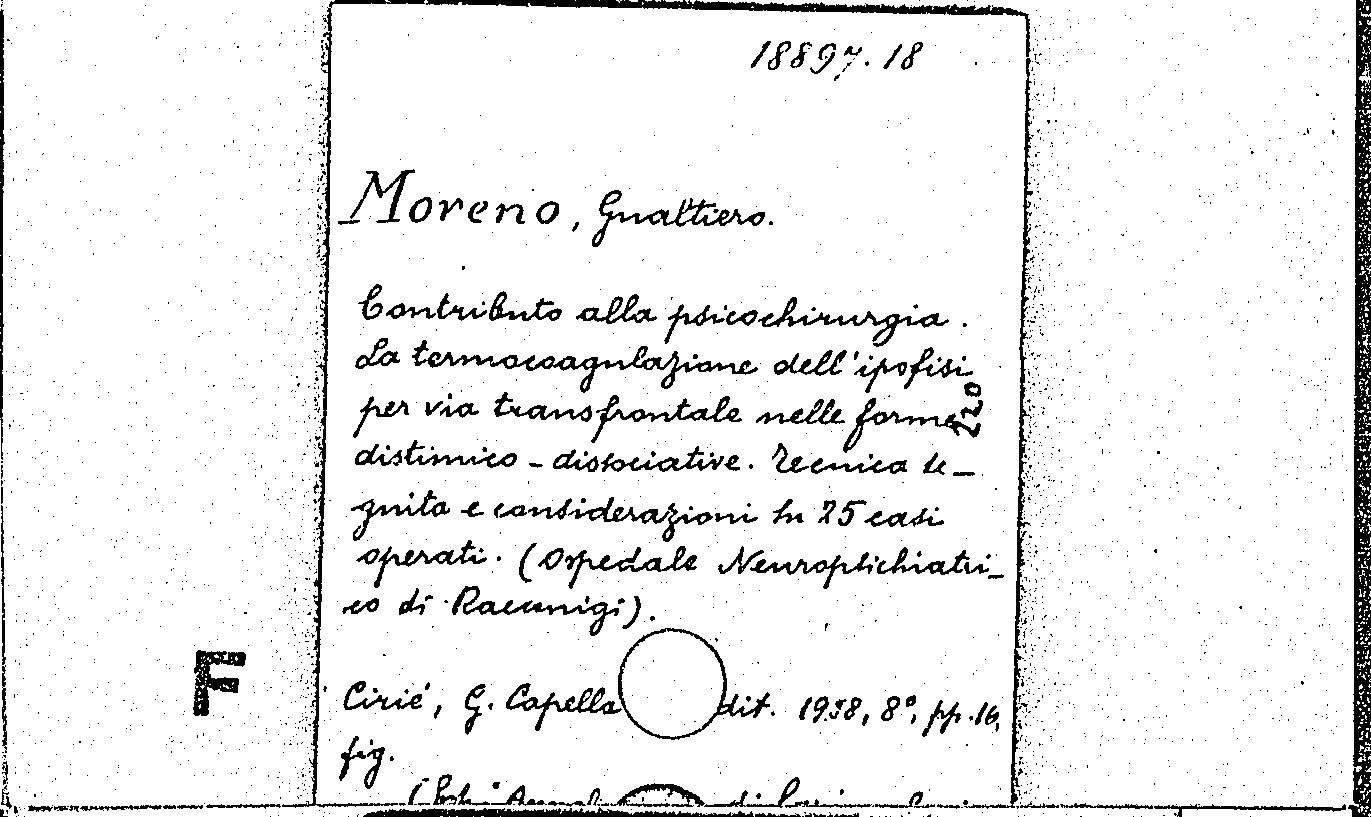 18897.18
Moreno, Gualtiero.
Contributo alla psicochirurgia.
La termocoagulazione dell'ipofisi
per via transfrontale nelle forme
220
distimico-dissociative. Tecnica se-
guita e considerazioni su 25 casi
operati. (Ospedale Neuropsichiatri-
co di Racconigi).
F
Cirié, G. Capella dit. 1958, 8°, pp. 16,
fig.